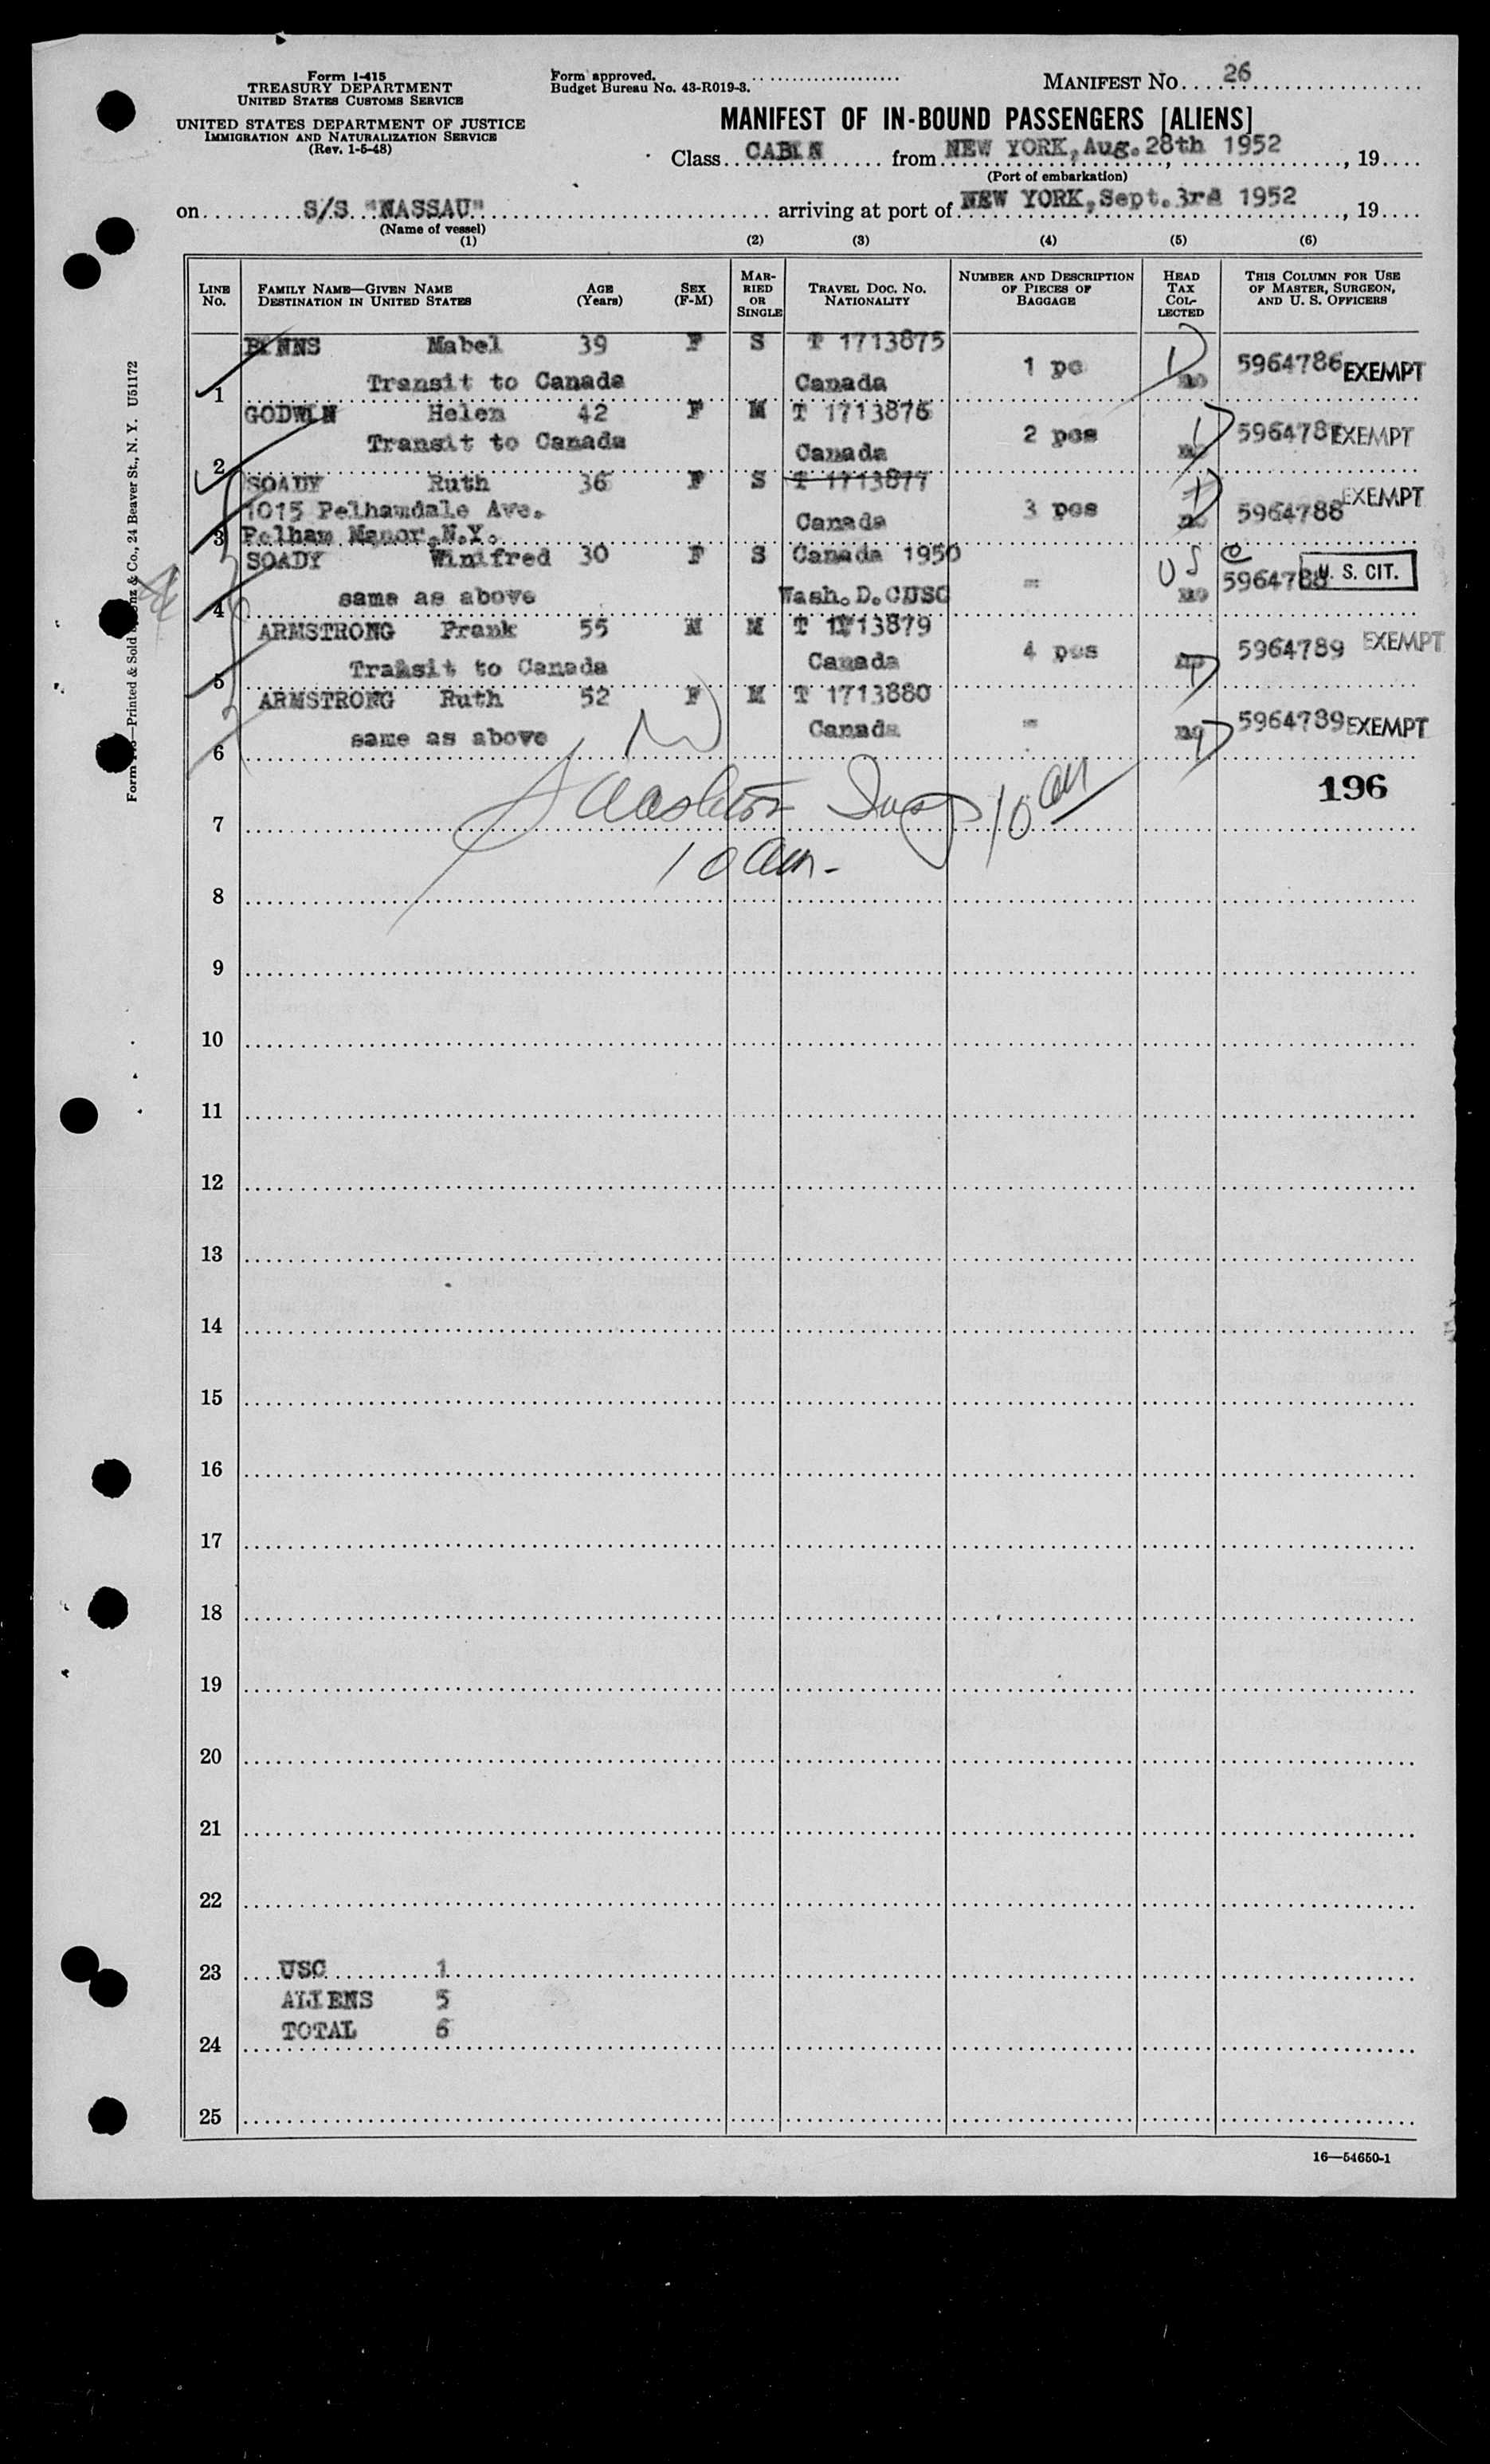 Form I-415
TREASURY DEPARTMENT
UNITED STATES CUSTOMS SERVICE
UNITED STATES DEPARTMENT OF JUSTICE
IMMIGRATION AND NATURALIZATION SERVICE
(Rev. 1-5-48)
Form approved.
Budget Bureau No. 43-R019-3.
MANIFEST NO. 26
MANIFEST OF IN-BOUND PASSENGERS [ALIENS]
Class CABIN from NEW YORK, Aug. 28th 1952, 19
(Port of embarkation)
on S/S "NASSAU" arriving at port of NEW YORK, Sept. 3rd 1952, 19
(Name of vessel)
(1) (2) (3) (4) (5) (6)
LINE No. FAMILY NAME—GIVEN NAME DESTINATION IN UNITED STATES AGE (Years) SEX (F-M) MARRIED OR SINGLE TRAVEL DOC. NO. NATIONALITY NUMBER AND DESCRIPTION OF PIECES OF BAGGAGE HEAD TAX COLLECTED THIS COLUMN FOR USE OF MASTER, SURGEON, AND U. S. OFFICERS
BINNS Mabel 39 F S T 1713875
1 Transit to Canada Canada 1 pc no 5964786 EXEMPT
GODWIN Helen 42 F M T 1713876
2 Transit to Canada Canada 2 pcs no 596478 EXEMPT
SOADY Ruth 36 F S T 1713877
1015 Pelhamdale Ave. Canada 3 pcs no 5964788 EXEMPT
3 Pelham Manor, N.Y.
SOADY Winifred 30 F S Canada 1950 US C
4 same as above Wash. D.C USC = no 5964788 U. S. CIT.
ARMSTRONG Frank 55 M M T 1713879
5 Transit to Canada Canada 4 pcs no 5964789 EXEMPT
ARMSTRONG Ruth 52 F M T 1713880
6 same as above Canada = no 5964789 EXEMPT
196
7 Insp 10 am
10 am.
8
9
10
11
12
13
14
15
16
17
18
19
20
21
22
23 USC 1
ALIENS 5
24 TOTAL 6
25
16—54650-1
Printed & Sold & Co., 24 Beaver St., N. Y. U51172